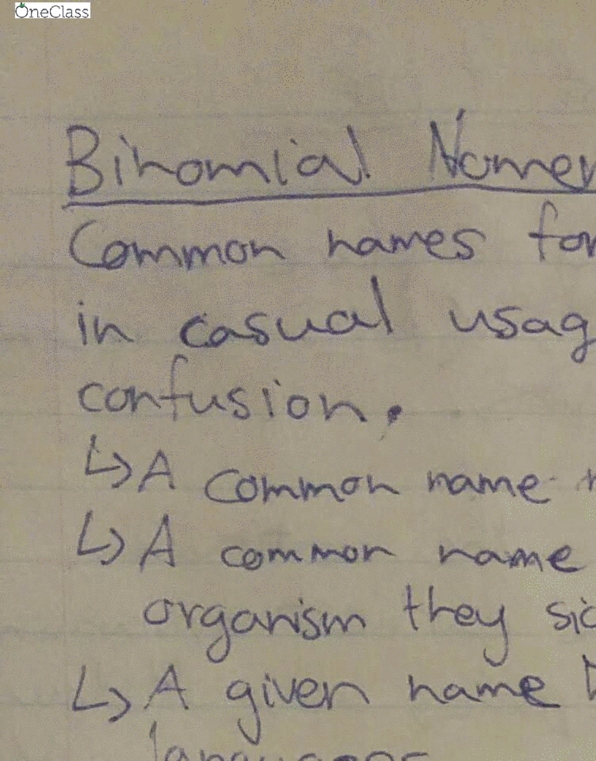 OneClass
Binomial Nomen
Common names for
in casual usag
confusion.
↳ A common name
↳ A common name
organism they sic
↳ A given name
languages